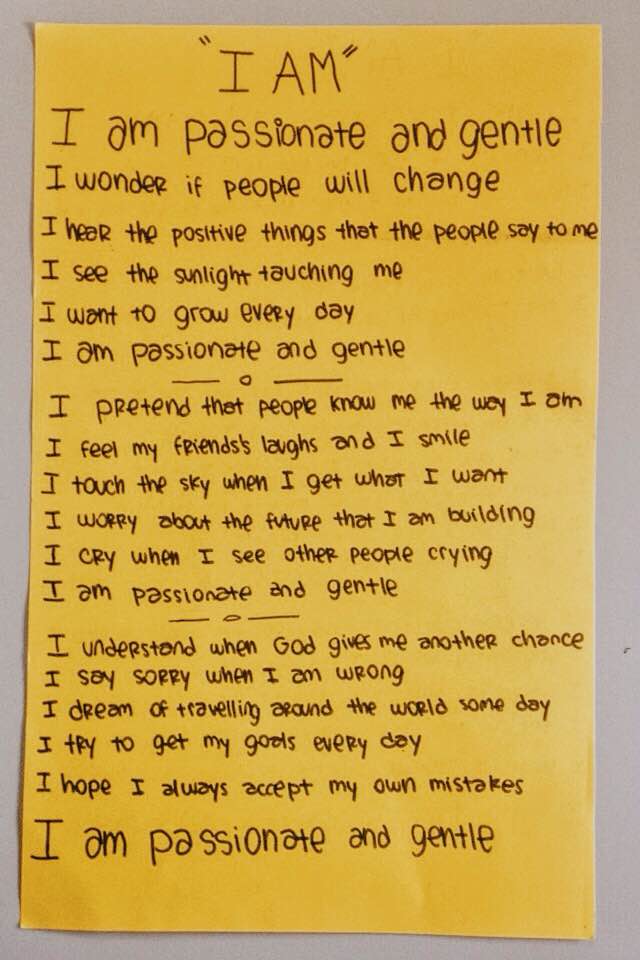 "I AM"
I am passionate and gentle
I wonder if people will change
I hear the positive things that the people say to me
I see the sunlight tauching me
I want to grow every day
I am passionate and gentle
I pretend that people know me the way I am
I feel my friends's laughs and I smile
I touch the sky when I get what I want
I worry about the future that I am building
I cry when I see other people crying
I am passionate and gentle
I understand when God gives me another chance
I say sorry when I am wrong
I dream of travelling around the world some day
I try to get my goals every day
I hope I always accept my own mistakes
I am passionate and gentle